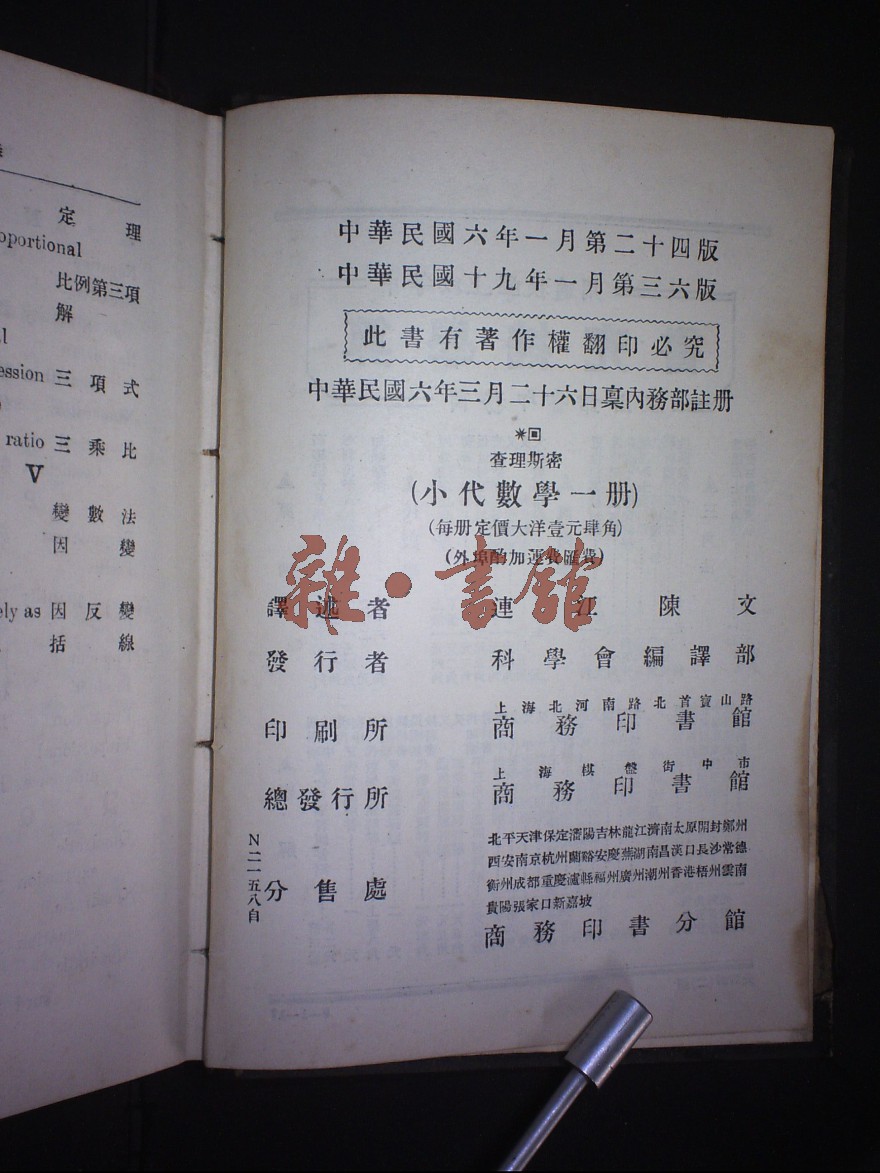 定理
oportional
比例第三項
解
l
ession 三項式
ratio 三乘比
V
變數法
因變
ely as 因反變
括線
中華民國六年一月第二十四版
中華民國十九年一月第三六版
此書有著作權翻印必究
中華民國六年三月二十六日稟內務部註册
查理斯密
(小代數學一册)
(每册定價大洋壹元肆角)
(外埠酌加運費匯費)
雜·書館
譯述者 連江陳文
發行者 科學會編譯部
上海北河南路北首寶山路
印刷所 商務印書館
上海棋盤街中市
總發行所 商務印書館
北平天津保定瀋陽吉林龍江濟南太原開封鄭州
西安南京杭州蘭谿安慶蕪湖南昌漢口長沙常德
衡州成都重慶瀘縣福州廣州潮州香港梧州雲南
貴陽張家口新嘉坡
分售處 商務印書分館
N二一五八自